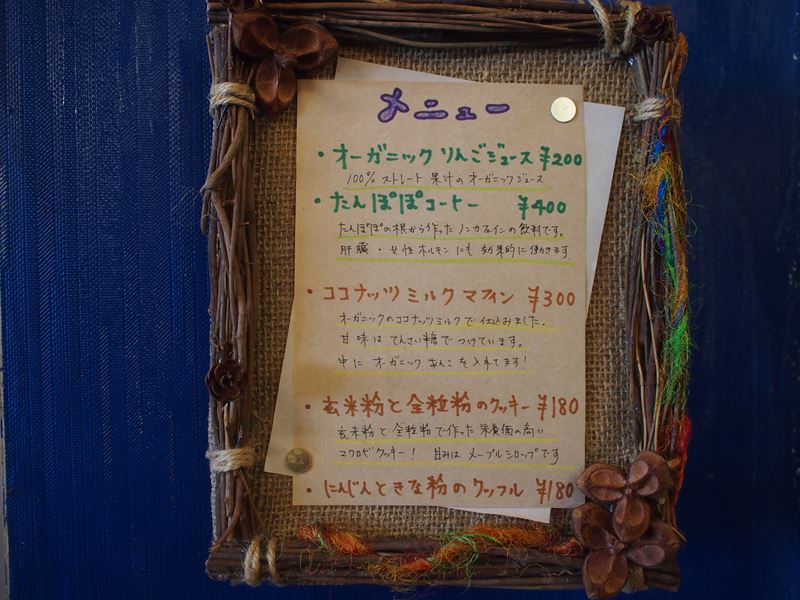 メニュー
・オーガニック りんごジュース ¥200
100% ストレート 果汁の オーガニックジュース
・たんぽぽコーヒー ¥400
たんぽぽの根から作った ノンカフェインの飲料です。
肝臓・女性ホルモンにも 効果的に働きます
・ココナッツ ミルク マフィン ¥300
オーガニックのココナッツミルクで仕込みました。
甘味は てんさい糖で つけています。
中に オーガニック あんこ を 入れてます!
・玄米粉と全粒粉のクッキー ¥180
玄米粉と全粒粉で作った 栄養価の高い
マクロビクッキー! 甘みは メープルシロップです
・にんじんときな粉のワッフル ¥180